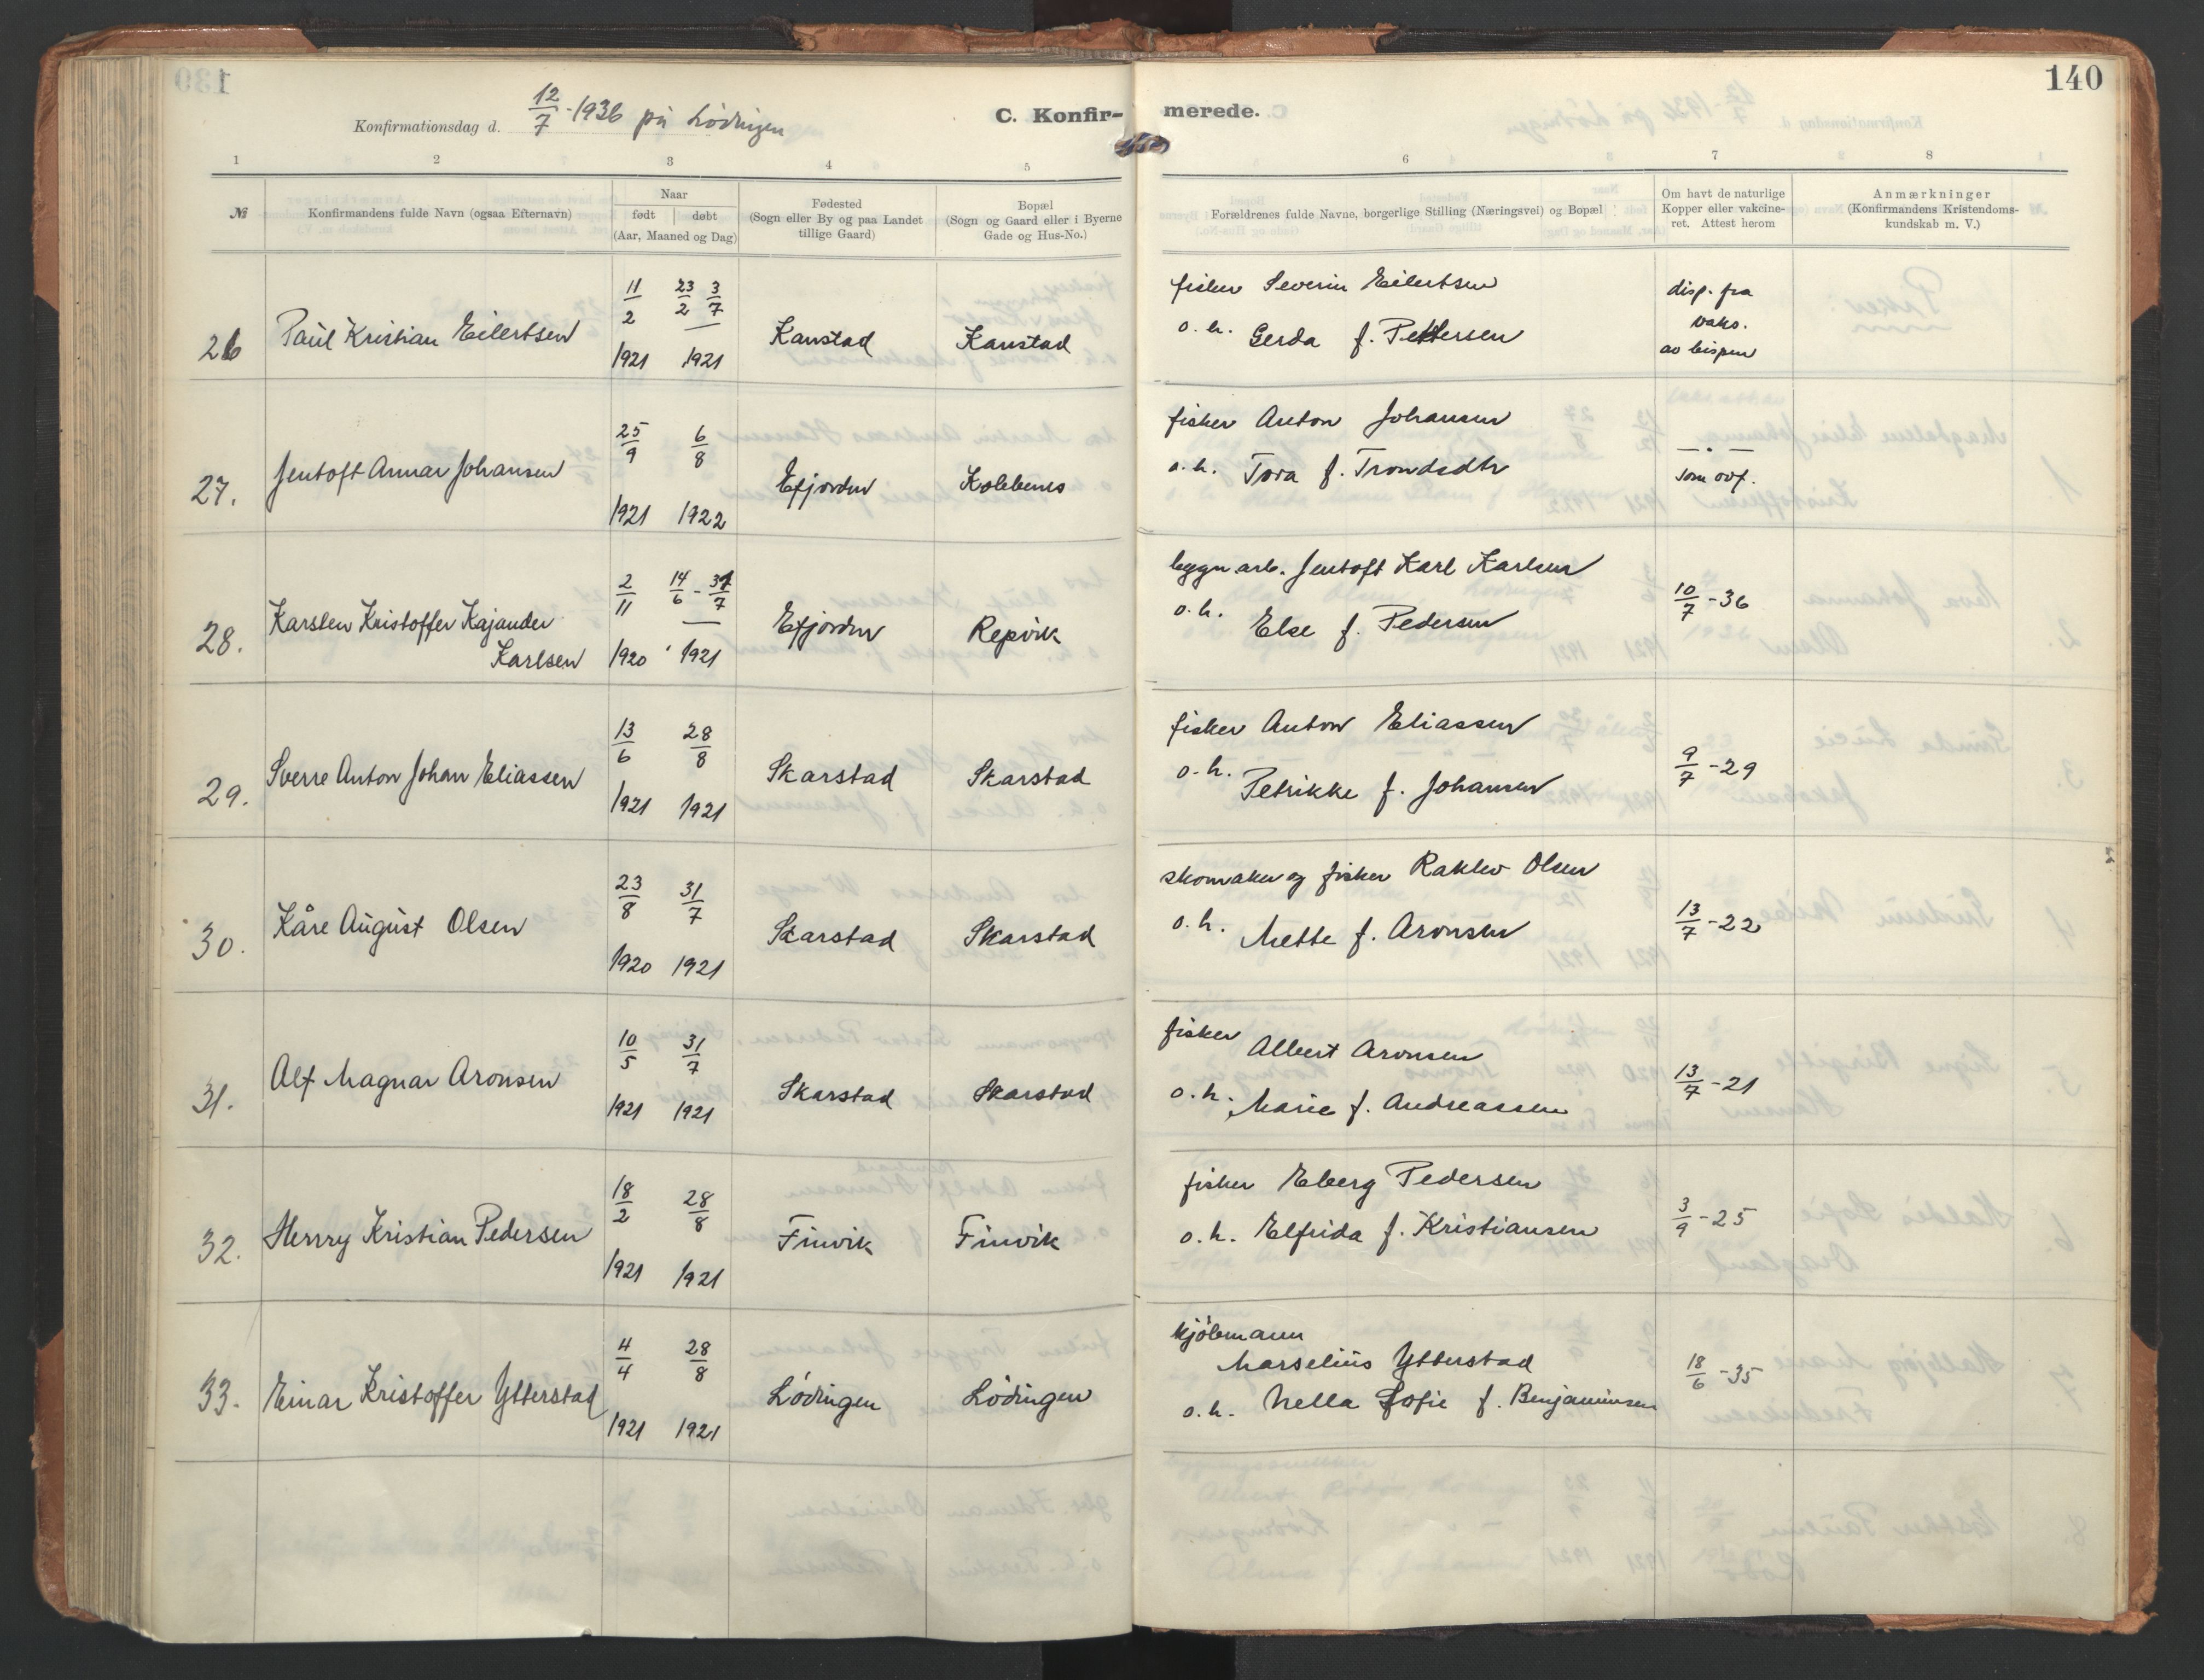 140
Konfirmationsdag d. 12/7-1936 på Lödingen
C. Konfir- merede.
1 2 3 4 5 6 7 8
№ Konfirmandens fulde Navn (ogsaa Efternavn) Naar født døbt (Aar, Maaned og Dag) Fødested (Sogn eller By og paa Landet tillige Gaard) Bopæl (Sogn og Gaard eller i Byerne Gade og Hus-No.) Forældrenes fulde Navne, borgerlige Stilling (Næringsvei) og Bopæl Om havt de naturlige Kopper eller vakcineret. Attest herom Anmærkninger (Konfirmandens Kristendomskundskab m. V.)
26 Paul Kristian Eilertsen 11/2 1921 23/2 3/7 1921 Kanstad Kanstad fisker Severin Eilertsen
o. h. Gerda f. Pettersen disp. fra vaks. av bispen
27. Jentoft Annar Johansen 25/9 1921 6/8 1922 Efjorden Kobbenes fisker Anton Johansen
o. h. Tora f. Trondsdtr — " — som ovf.
28. Karsten Kristoffer Kajander Karlsen 2/11 1920 14/6 - 31/7 1921 Efjorden Repvik bygn. arb. Jentoft Karl Karlsen
o. h. Else f. Pedersen 10/7-36
29. Sverre Anton Johan Eliassen 13/6 1921 28/8 1921 Skarstad Skarstad fisker Anton Eliassen
o. h. Petrikke f. Johansen 9/7-29
30. Kåre August Olsen 23/8 1920 31/7 1921 Skarstad Skarstad skomaker og fisker Raklev Olsen
o. h. Mette f. Aronsen 13/7-22
31. Alf Magnar Aronsen 10/5 1921 31/7 1921 Skarstad Skarstad fisker Albert Aronsen
o. h. Marie f. Andreassen 13/7-21
32. Henry Kristian Pedersen 18/2 1921 28/8 1921 Finvik Finvik fisker Eberg Pedersen
o. h. Elfrida f. Kristiansen 3/9-25
33. Einar Kristoffer Ytterstad 4/4 1921 28/8 1921 Lödingen Lödingen kjöbmann Marselius Ytterstad
o. h. Nella Sofie f. Benjaminsen 18/6-35